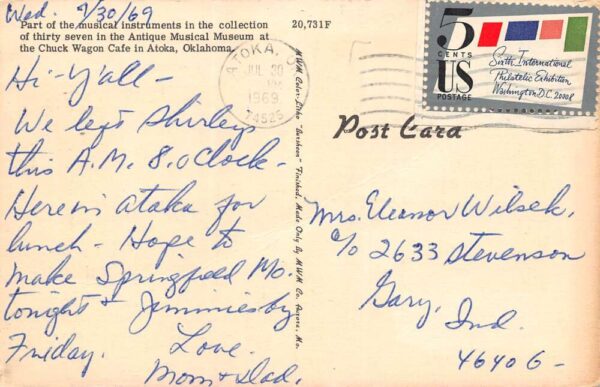 Wed. 7/30/69
Part of the musical instruments in the collection
of thirty seven in the Antique Musical Museum at
the Chuck Wagon Cafe in Atoka, Oklahoma.
20,731F
Hi-Y'all-
We left Shirleys
this A.M. 8.oClock-
Here in Atoka for
lunch - Hope to
make Springfield Mo.
tonight + Jimmiesby
Friday.
Love.
Mom & Dad.
MWM Color-Litho "Eurcheen" Finished. Made Only By MWM Co. Aurora, Mo.
ATOKA,
JUL 30
1969
74525
5
CENTS
US
POSTAGE
Sixth International
Philatelic Exhibition
Washington D.C. 20008
Post Card
Mrs. Eleanor Wilsek.
c/o 2633 Stevenson
Gary, Ind.
46406-